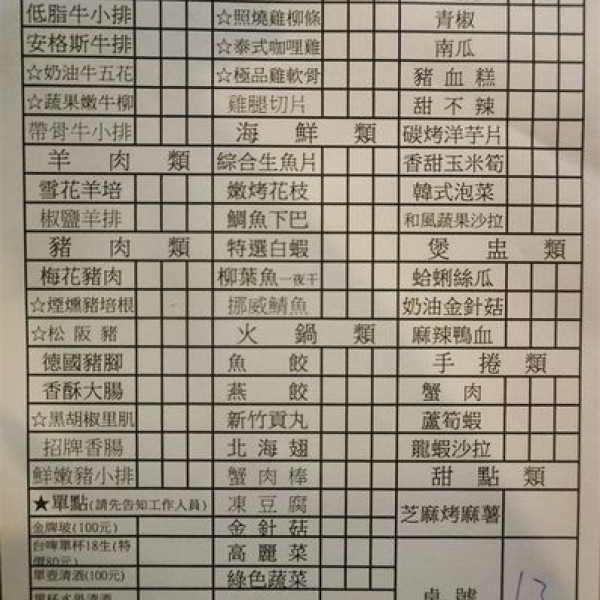 低脂牛小排
安格斯牛排
☆奶油牛五花
☆蔬果嫩牛柳
帶骨牛小排
羊肉類
雪花羊培
椒鹽羊排
豬肉類
梅花豬肉
☆煙燻豬培根
☆松阪豬
德國豬腳
香酥大腸
☆黑胡椒里肌
招牌香腸
鮮嫩豬小排
★單點(請先告知工作人員)
金牌玻(100元)
台啤單杯18生(特
價80元)
單壺清酒(100元)
單杯水果清酒
☆照燒雞柳條
☆泰式咖哩雞
☆極品雞軟骨
雞腿切片
海鮮類
綜合生魚片
嫩烤花枝
鯛魚下巴
特選白蝦
柳葉魚一夜干
挪威鯖魚
火鍋類
魚餃
燕餃
新竹貢丸
北海翅
蟹肉棒
凍豆腐
金針菇
高麗菜
綠色蔬菜
青椒
南瓜
豬血糕
甜不辣
碳烤洋芋片
香甜玉米筍
韓式泡菜
和風蔬果沙拉
煲盅類
蛤蜊絲瓜
奶油金針菇
麻辣鴨血
手捲類
蟹肉
蘆筍蝦
龍蝦沙拉
甜點類
芝麻烤麻薯
桌號